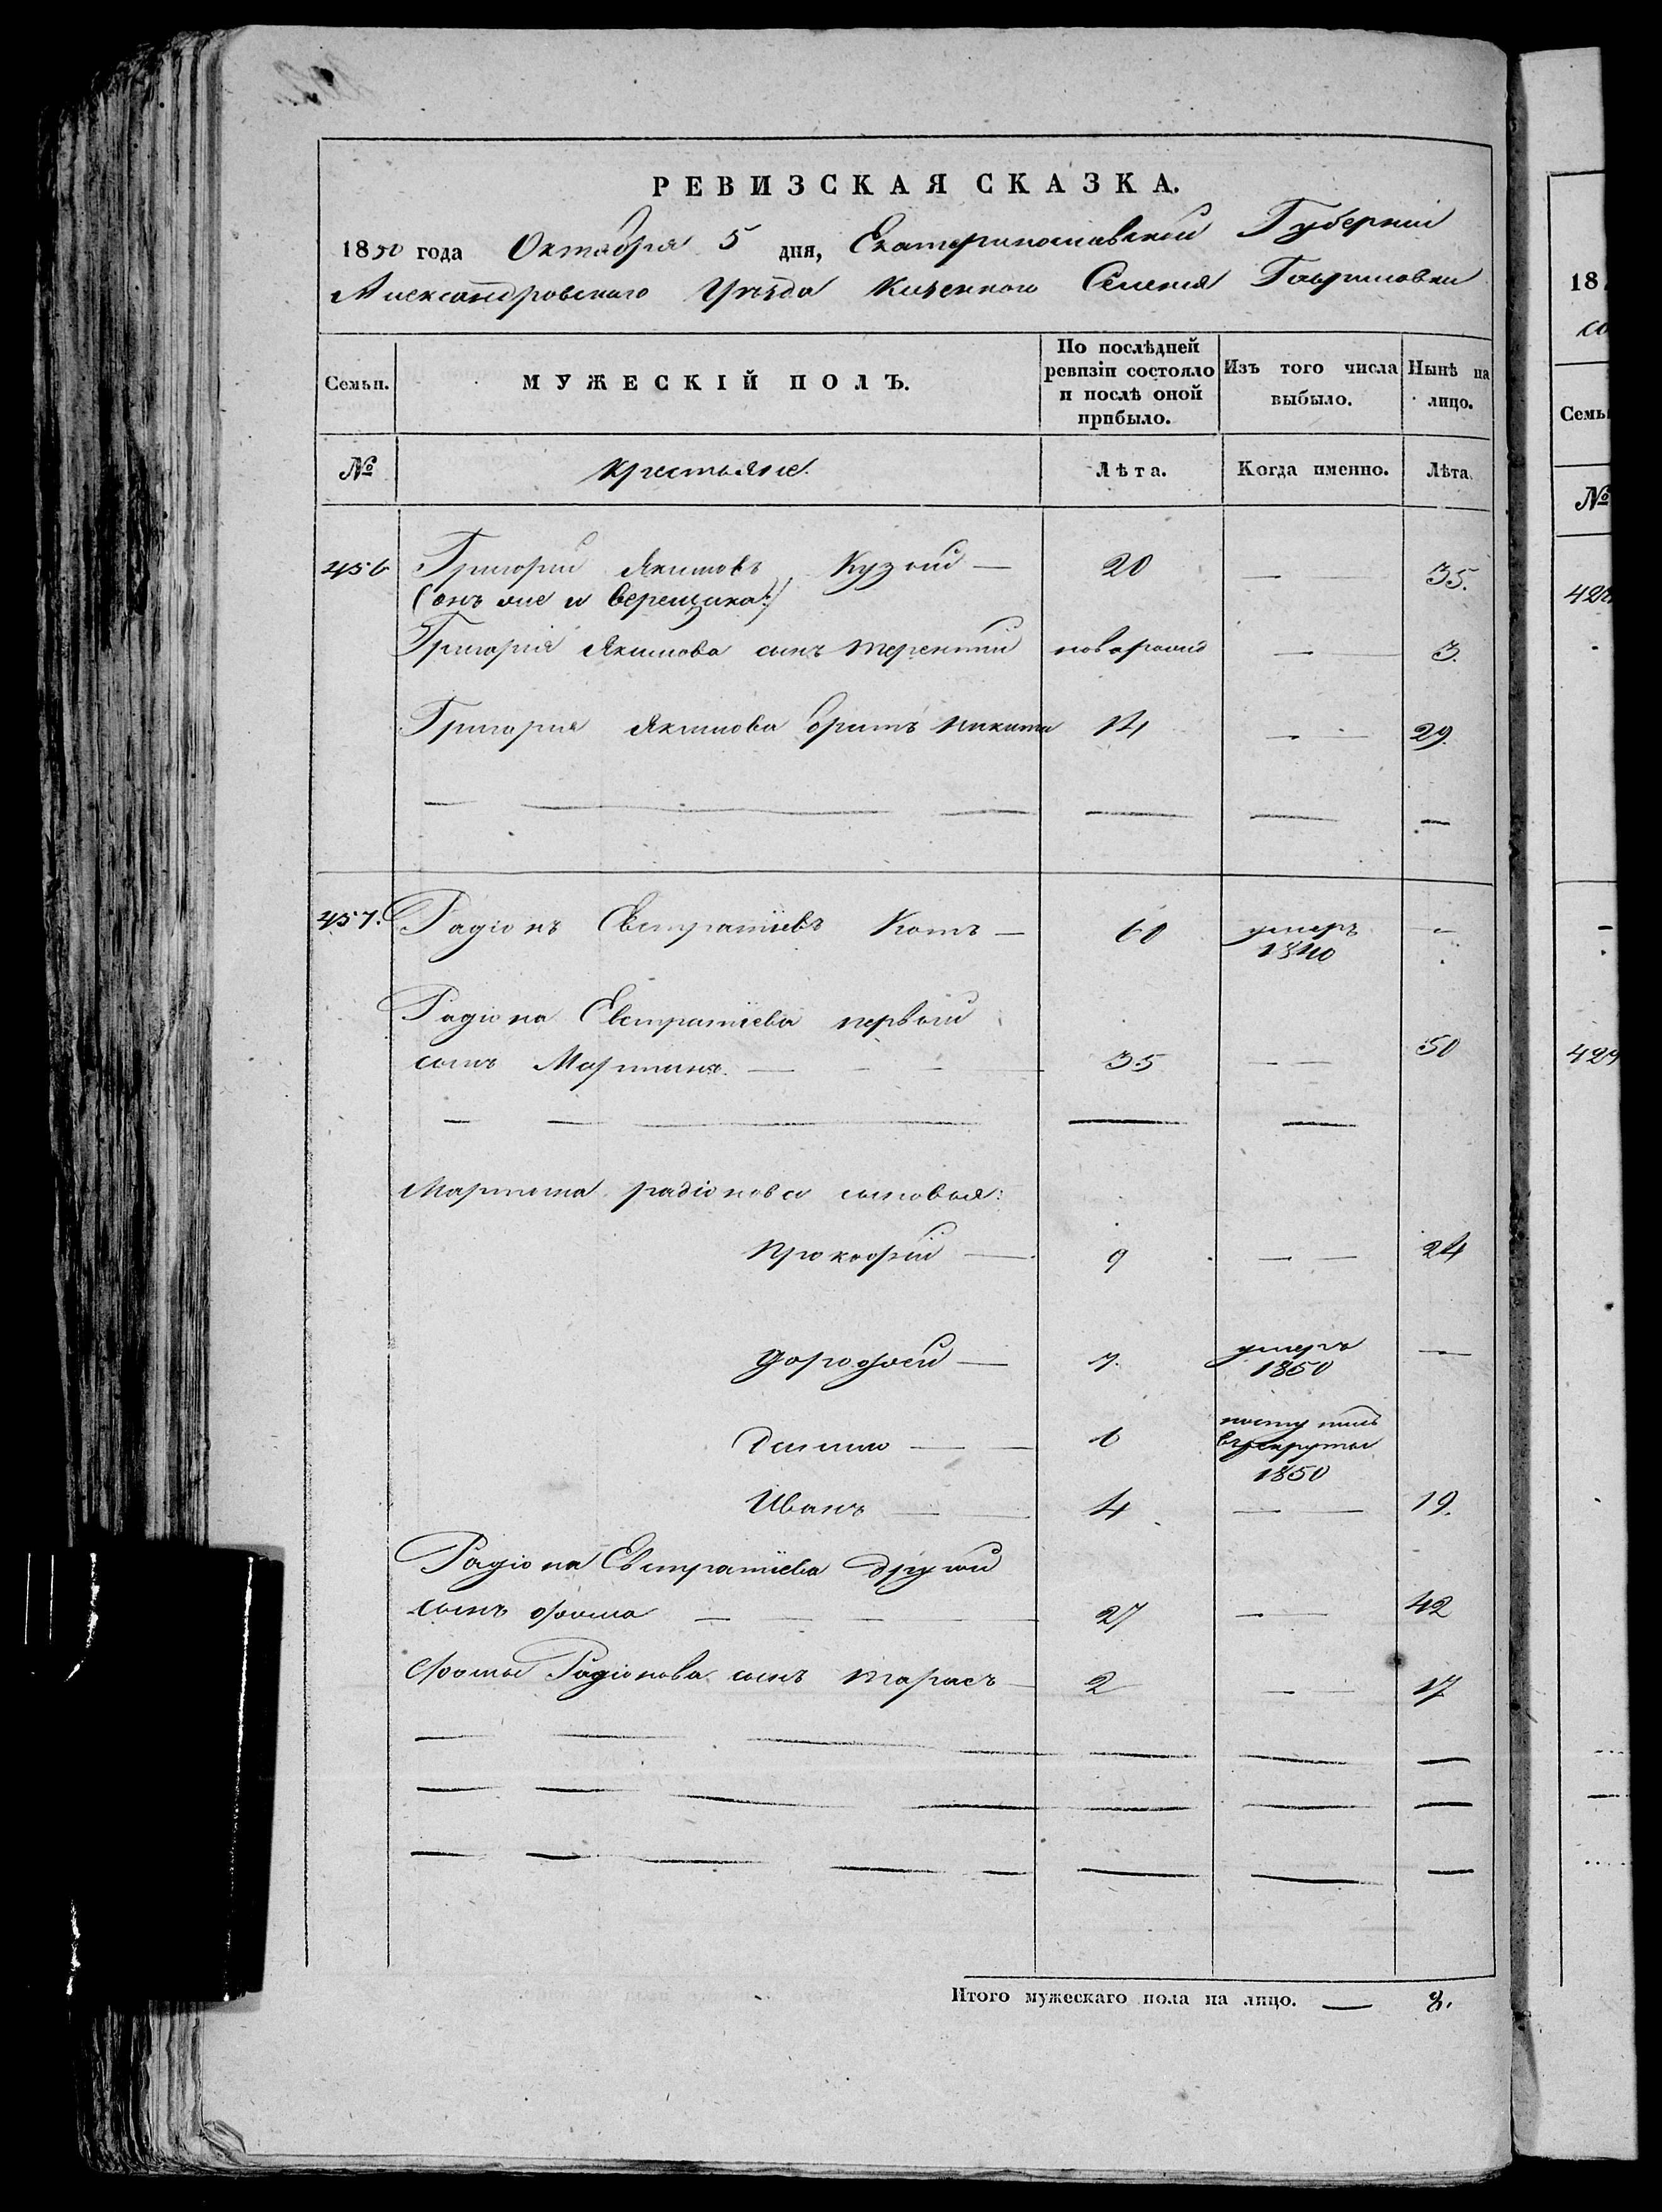 РЕВИЗСКАЯ СКАЗКА.
1850 года Октября 5 дня, Екатеринославской Губерніи
Александровскаго Уѣзда Казенного Селенія Гавриловки
Семьи. МУЖЕСКІЙ ПОЛЪ. По послѣдней ревизіи состояло и послѣ оной прибыло. Изъ того числа выбыло. Нынѣ на лицо.
№ Крестьяне. Лѣта. Когда именно. Лѣта.
456 Григорий Якимовъ Куз — 20 — 35.
(онъ же и Верещака)
Григорія Якимова сынъ Терентий новорожд — 3.
Григория Якимова братъ Никита 14 — 29.
457. Радіонъ Евстратіевъ Котъ — 60 умеръ 1840 —
Радіона Евстратіева первый
сынъ Мартинъ — 35 — 50
Мартина радіонова сыновья:
Прокофій — 9 — 24
Дорофей — 7. умеръ 1850 —
Данило — 6 поступилъ в рекруты 1850
Иванъ — 4 — 19.
Радіона Евстратіева другой
сынъ Фома — 27 — 42
Фомы Радіонова сынъ Тарасъ 2 — 17
Итого мужескаго пола на лицо. — 8.
18
Семьи
№